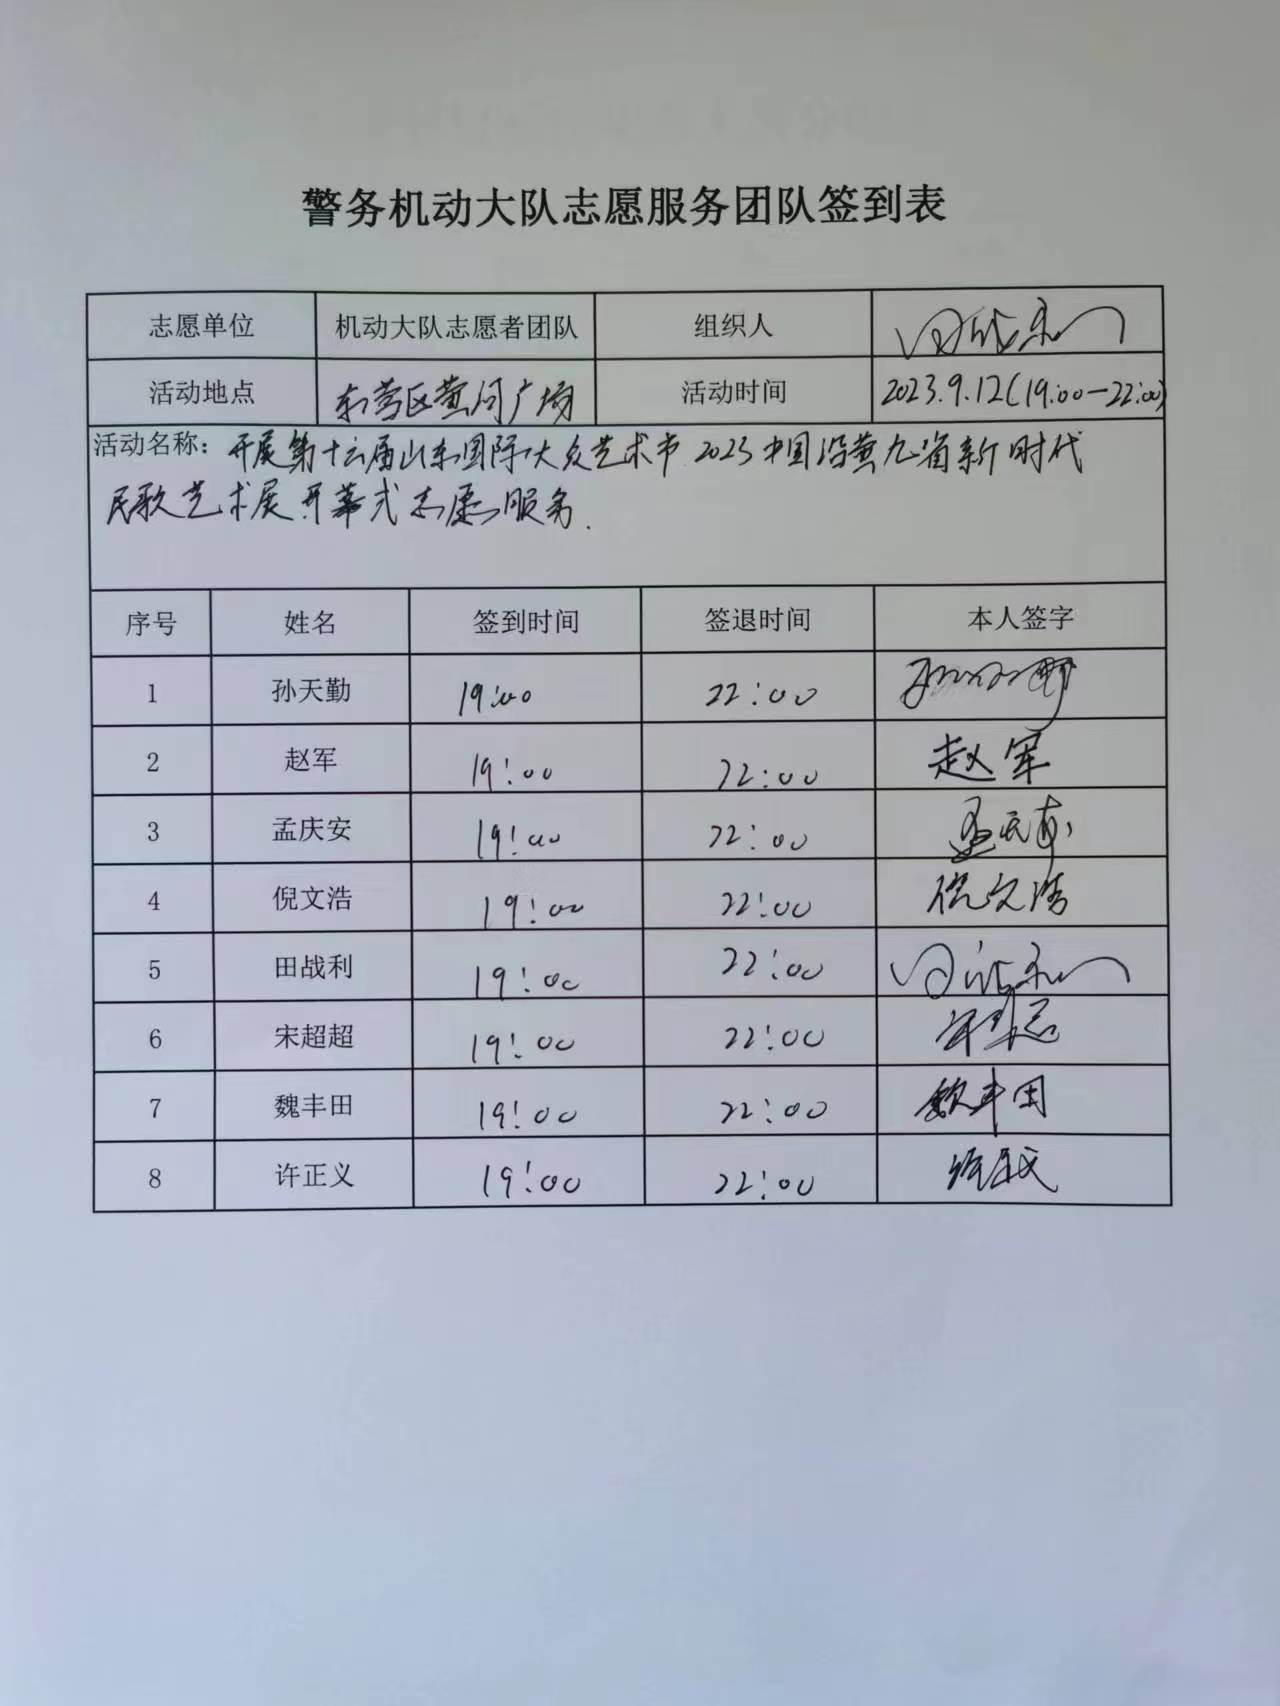 警务机动大队志愿服务团队签到表
志愿单位 机动大队志愿者团队 组织人 田战利
活动地点 东营区黄河广场 活动时间 2023.9.12(19:00—22:00)
活动名称：开展第十六届山东国际大众艺术节.2023中国沿黄九省新时代
民歌艺术展开幕式志愿服务.
序号 姓名 签到时间 签退时间 本人签字
1 孙天勤 19:00 22:00
2 赵军 19:00 22:00 赵军
3 孟庆安 19:00 22:00
4 倪文浩 19:00 22:00 倪文浩
5 田战利 19:00 22:00 田战利
6 宋超超 19:00 22:00
7 魏丰田 19:00 22:00 魏丰田
8 许正义 19:00 22:00 许正义